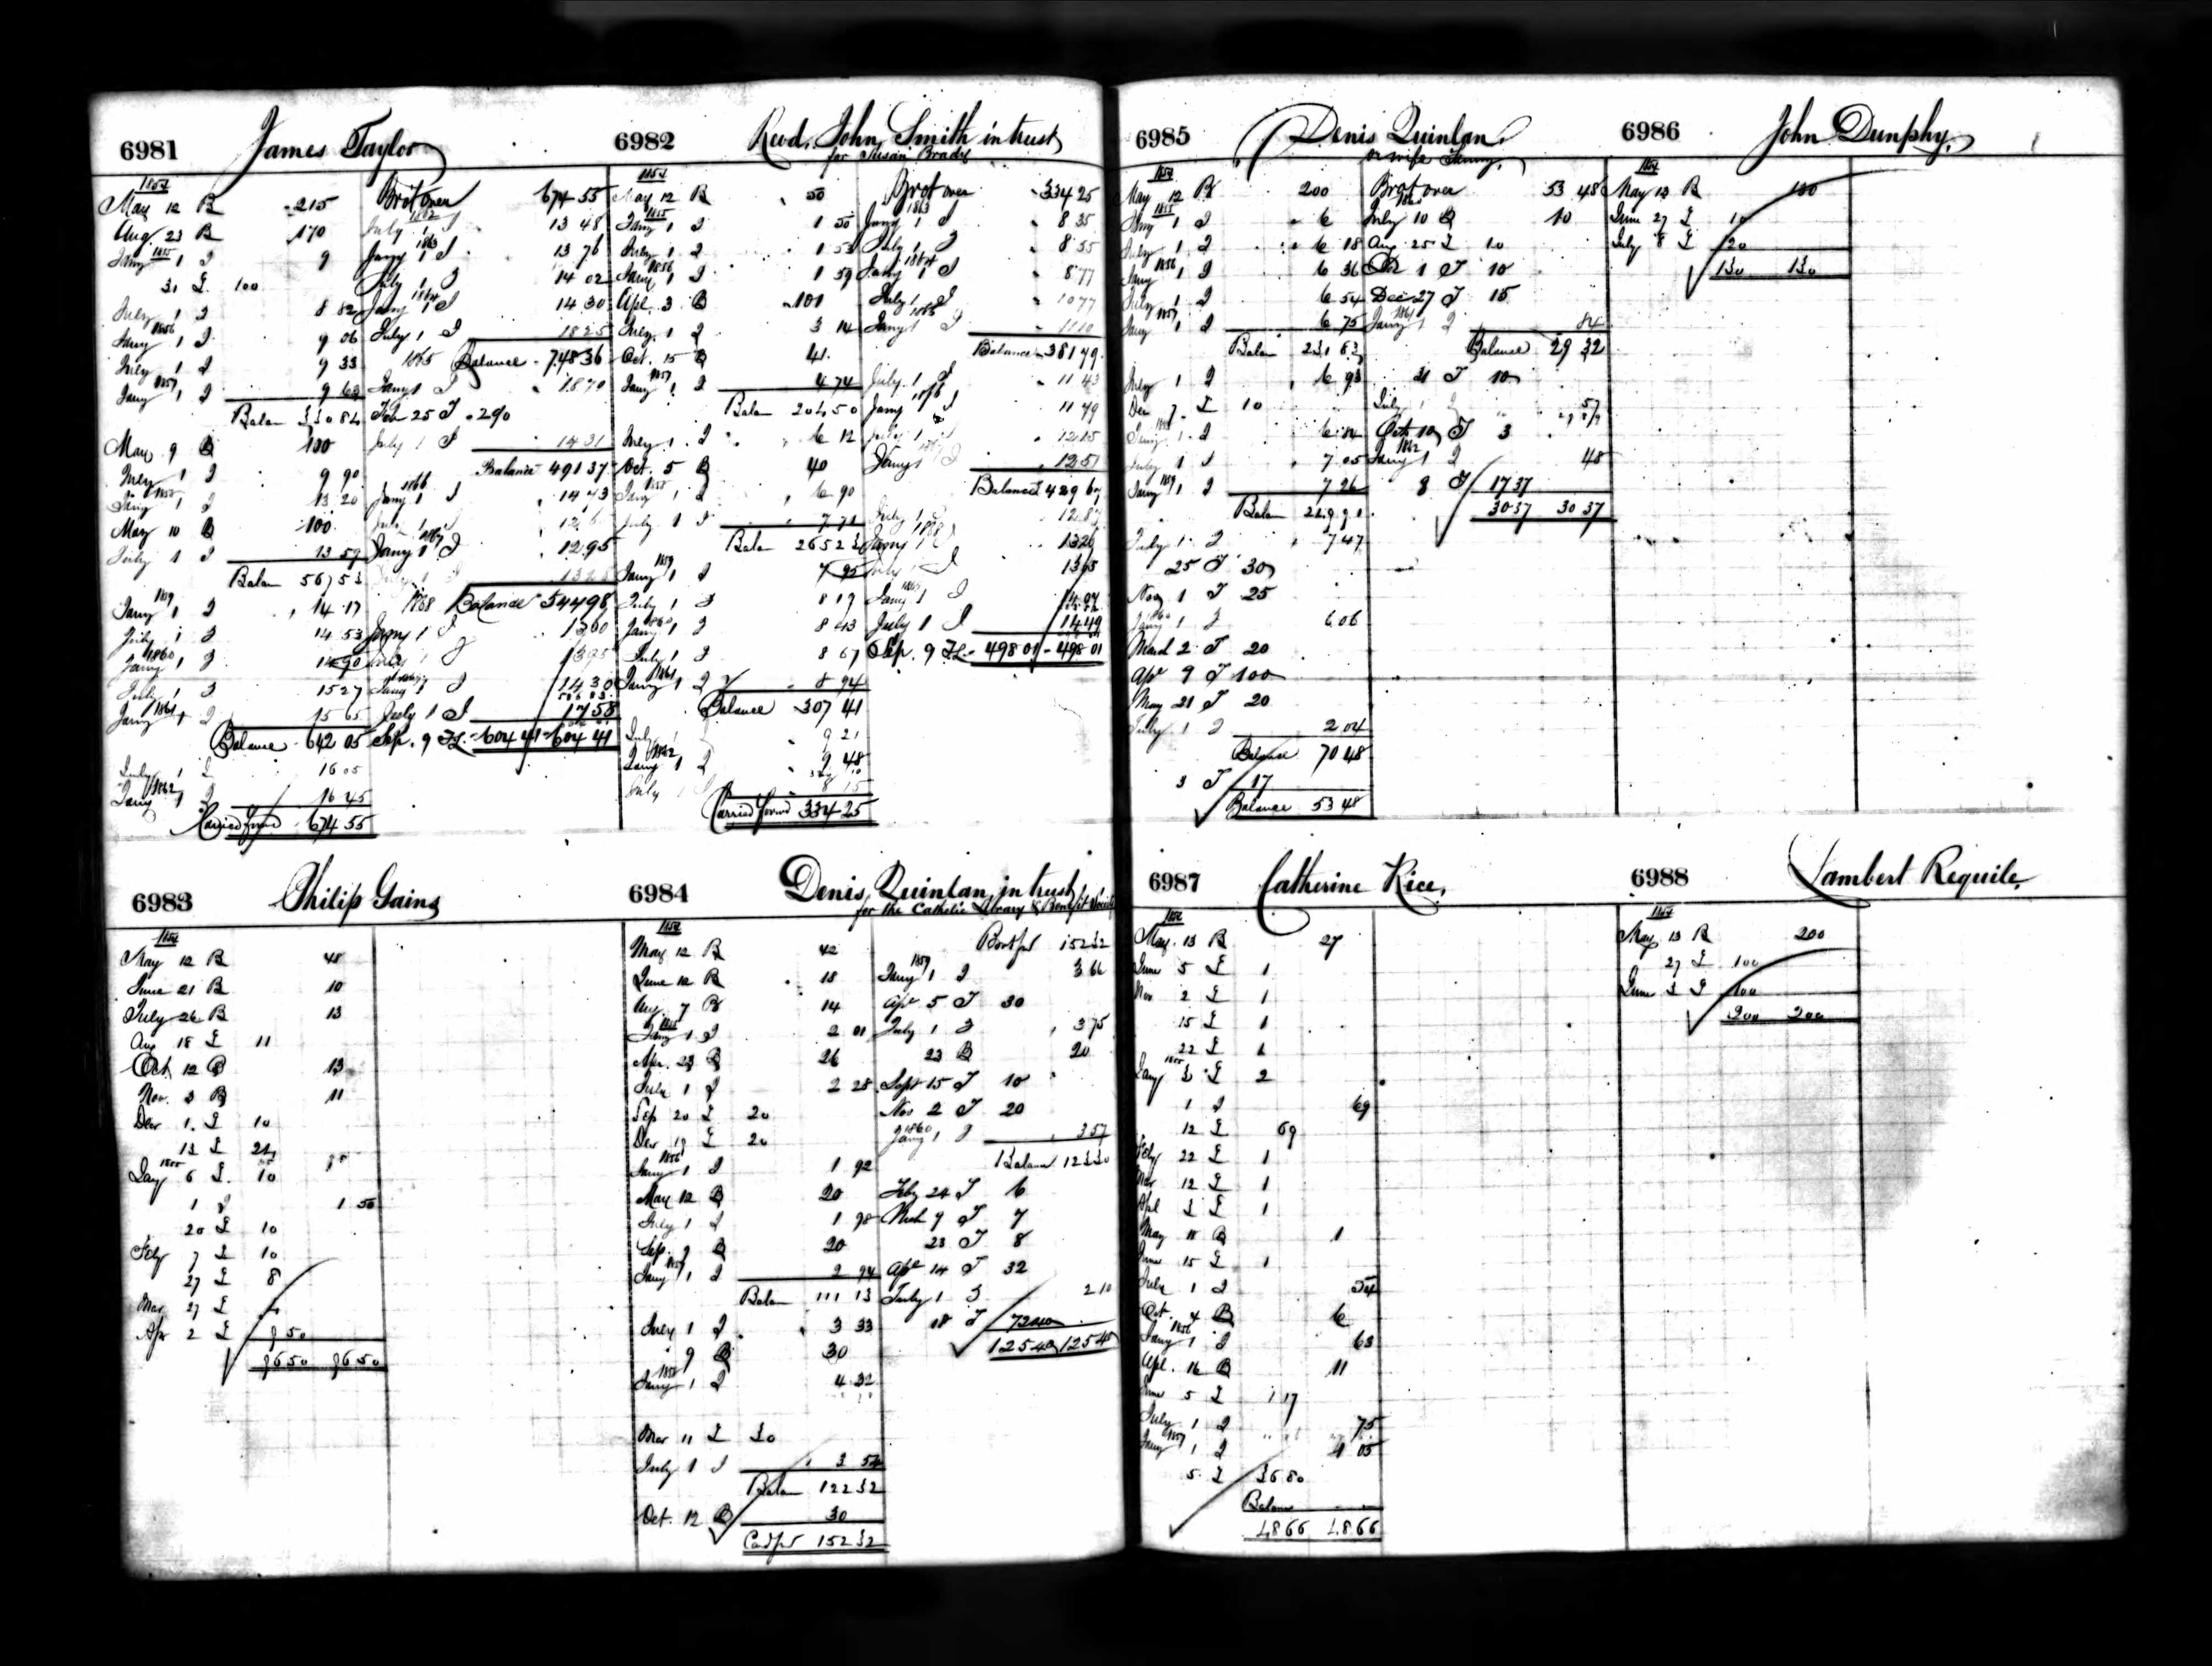 6981 James Taylor
1854
May 12 B 215
Aug. 23 B 170
1855
Jany 1 I 9
31 L 100
July 1 I 8 82
1856
Jany 1 I 9 06
July 1 I 9 33
1857
Jany 1 I 9 63
Balan 330 84
May 9 B 100
July 1 I 9 90
1858
Jany 1 I 13 20
May 10 B 100
July 1 I 13 59
Balan 567 53
1859
Jany 1 I 14 17
July 1 I 14 53
1860
Jany 1 I 14 90
July 1 I 15 27
1861
Jany 1 I 15 65
Balance 642 05
July 1 I 16 05
1862
Jany 1 I 16 45
Carried forwd 674 55
Brot over 674 55
1862
July 1 I 13 48
1863
Jany 1 I 13 76
July 1 I 14 02
1864
Jany 1 I 14 30
July 1 I 18 25
1865 Balance 748 36
Jany 1 I 18 70
Feb 25 T 290
July 1 I 14 31
Balance 491 37
1866
Jany 1 I 14 43
July 1 I
1867
Jany 1 I 12 95
July 1 I
1868 Balance 544 98
Jany 1 I 13 60
July 1 I 13 95
Jany 1 I 14 30
July 1 I 17 58
Sep. 9 604 41 604 41
6982 Revd. John Smith in trust
for Susan Brady
1854
May 12 B 50
1855
Jany 1 I 1 50
July 1 I 1 53
1856
Jany 1 I 1 59
Apl. 3 B 101
July 1 I 3 14
Oct. 15 B 41
1857
Jany 1 I 4 74
Balan 204 50
July 1 I 6 12
Oct. 5 B 40
1858
Jany 1 I 6 90
July 1 I 7 71
Balan 265 23
1859
Jany 1 I 7 95
July 1 I 8 19
1860
Jany 1 I 8 43
July 1 I 8 67
1861
Jany 1 I 8 94
Balance 307 41
July 1 9 21
1862
Jany 1 I 9 48
July 1 I 8 15
Carried forwd 334 25
Brot over 334 25
1863
Jany 1 I 8 35
July 1 I 8 55
1864
Jany 1 I 8 77
July 1 I 10 77
1865
Jany 1 I 11 10
Balance 381 79
July 1 I 11 43
1866
Jany 1 I 11 79
July 1 I 12 15
Jany 1 I 12 51
Balance 429 67
July 1 I 12 87
1868
Jany 1 I 13 26
July 1 I 13 65
Jany 1 I 14 07
July 1 I 14 49
Sep. 9 498 01 498 01
6983 Philip Gains
1854
May 12 B 48
June 21 B 10
July 26 B 13
Aug 18 L 11
Oct 12 B 13
Nov. 3 B 11
Decr 1 L 10
13 L
1855
Jany 6 L 10
1 I 1 50
20 L 10
Feby 7 L 10
27 L 8
Mar 27 L
Apr 2 L 9 50
96 50 96 50
6984 Denis Quinlan in trust
for the Catholic Library & Benefit Society
1854
May 12 B 42
June 12 B 18
Aug. 7 B 14
1855
Jany 1 I 2 01
Apr. 23 B 26
July 1 I 2 28
Sep 20 L 20
Decr 19 L 20
1856
Jany 1 I 1 92
May 12 B 20
July 1 I 1 98
Sep. 9 B 20
1857
Jany 1 I 2 94
Balan 111 13
July 1 I 3 33
9 B 30
1858
Jany 1 I 4 32
Mar 11 L 30
July 1 I 3 54
Balan 122 32
Oct. 12 B 30
Card for 152 32
Brot for 152 32
1859
Jany 1 I 3 66
Apr 5 T 30
July 1 I 3 75
23 B 20
Sept 15 T 10
Nov 2 T 20
1860
Jany 1 I 3 57
Balan 123 30
Feby 24 T 6
Mch 9 T 7
23 T 8
Apl 14 T 32
July 1 I 2 10
18 T 72 40
125 40 125 40
6985 Denis Quinlan,
or wife Fanny,
1854
May 12 B 200
1855
Jany 1 I 6
July 1 I 6 18
1856
Jany 1 I 6 36
July 1 I 6 54
1857
Jany 1 I 6 75
Balan 231 83
July 1 I 6 93
Dec 7 L 10
1858
Jany 1 I 6 84
July 1 I 7 05
1859
Jany 1 I 7 26
Balan 249 91
July 1 I 7 47
25 T 30
Nov 1 T 25
1860
Jany 1 I 6 06
March 2 T 20
Apr 9 T 100
May 21 T 20
July 1 I 2 04
Balance 70 48
3 T 17
Balance 53 48
Brot over 53 48
1860
July 10 B 10
Aug 25 L 10
Oct 1 T 10
Dec 27 T 15
1861
Jany 1 I 84
Balance 29 32
31 T 10
July 1 I 57
Octo 10 T 3
1862
Jany 1 I 48
8 T 17 37
30 37 30 37
6986 John Dunphy,
1854
May 13 B 130
June 27 L 10
July 8 L 120
130 130
6987 Catherine Rice,
1854
May 13 B 27
June 5 L 1
Nov 2 L 1
15 L 1
22 L 1
1855
Jany 3 L 2
1 I 69
12 L 69
Feby 22 L 1
Mar 12 L 1
Apl 3 L 1
May 11 B 1
June 15 L 1
July 1 I 54
Oct. 4 B 6
1856
Jany 1 I 63
Apl. 16 B 11
June 5 L 1 17
July 1 I 75
1857
Jany 1 I 1 05
5 L 36 80
Balan
48 66 48 66
6988 Lambert Requile,
1854
May 13 B 200
27 L 100
June 3 L 100
200 200